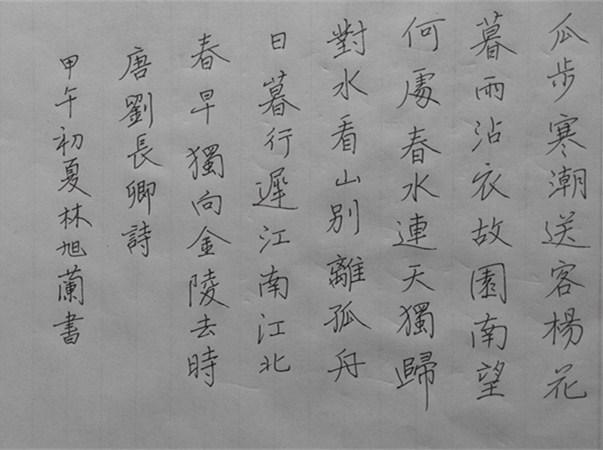 瓜步寒潮送客楊花
暮雨沾衣故園南望
何處春水連天獨歸
對水看山別離孤舟
日暮行遲江南江北
春早獨向金陵去時
唐劉長卿詩
甲午初夏林旭蘭書